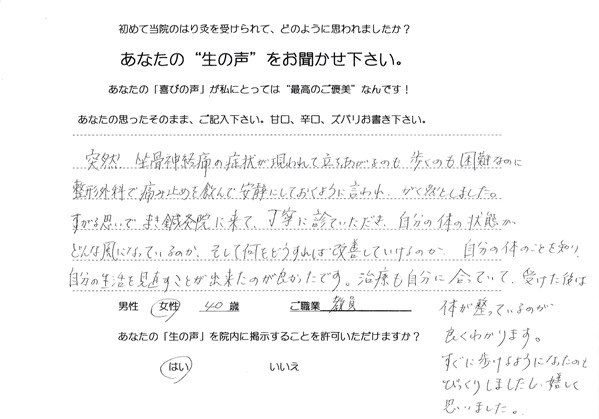 初めて当院のはり灸を受けられて、どのように思われましたか?
あなたの“生の声”をお聞かせ下さい。
あなたの「喜びの声」が私にとっては“最高のご褒美”なんです!
あなたの思ったそのまま、ご記入下さい。甘口、辛口、ズバリお書き下さい。
突然、坐骨神経痛の症状が現われて立ちあがるのも、歩くのも困難なのに
整形外科で痛み止めを飲んで安静にしておくように言われ、がく然としました。
すがる思いで、まき鍼灸院に来て、丁寧に診ていただき、自分の体の状態が
どんな風になっているのか、そして何をどうすれば改善していけるのか、自分の体のことを知り、
自分の生活を見直すことが出来たのが良かったです。治療も自分に合っていて、受けた後は
体が整っているのが
良くわかります。
すぐに歩けるようになったのも
びっくりしましたし、嬉しく
思いました。
男性 女性 40歳 ご職業 教員
あなたの「生の声」を院内に掲示することを許可いただけますか?
はい いいえ